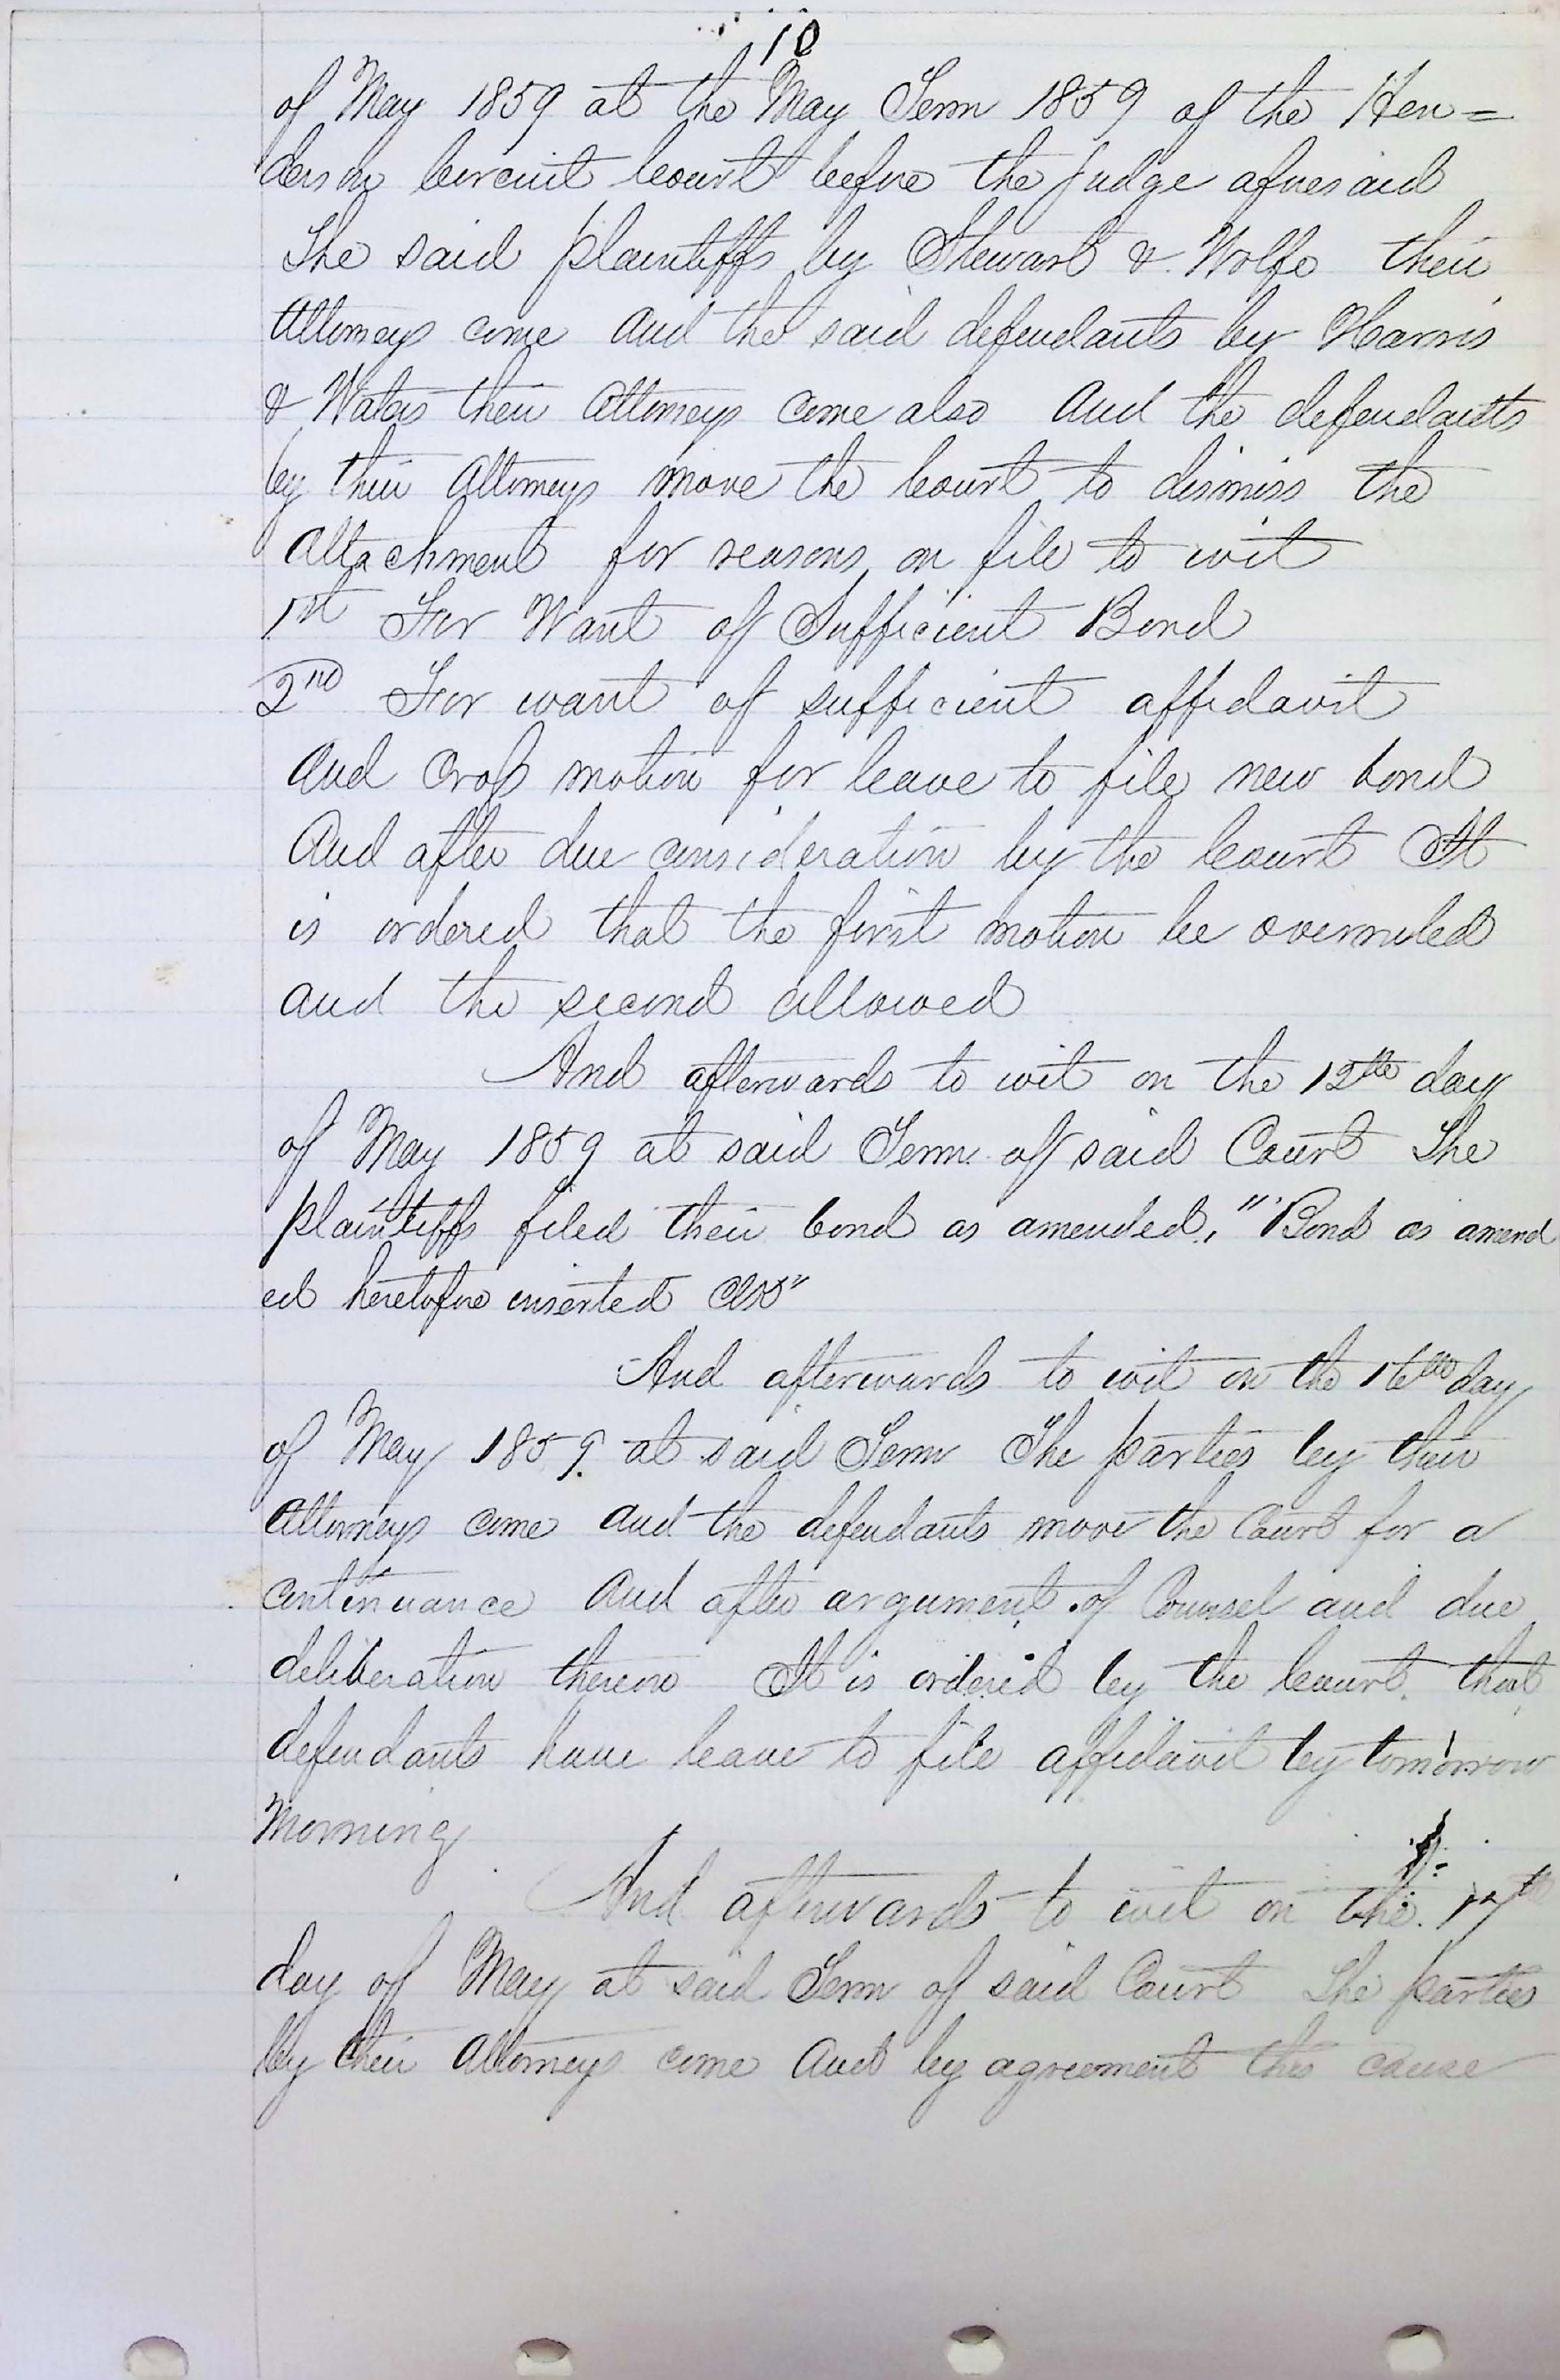 10
of May 1859 at the May Term 1859 of the Hen=
derson Circuit Court before the Judge aforesaid
The said plaintiffs by Stewart & Wolfe their
Attorneys come and the said defendants by Harris
& Waters their Attorneys come also and the defendants
by their Attorneys move the Court to dismiss the
Attachment for reasons on file to wit
1st For Want of Sufficient Bond
2nd For want of sufficient affidavit
And Cross motion for leave to file new bond
And after due consideration by the Court It
is ordered that the first motion be overruled
and the second allowed
And afterwards to wit on the 12th day
of May 1859 at said Term of said Court The
plaintiffs filed their bond as amended, "Bond as amend
ed heretofore inserted
And afterwards to wit on the 16th day
of May 1859. at said Term The parties by their
Attorneys come and the defendants move the Court for a
continuance And after argument of Counsel and due
deliberation thereon It is ordered by the Court that
defendants have leave to file affidavit by tomorrow
Morning
And afterwards to wit on the 17th
day of May at said Term of said Court The parties
by their Attorneys come And by agreement this cause